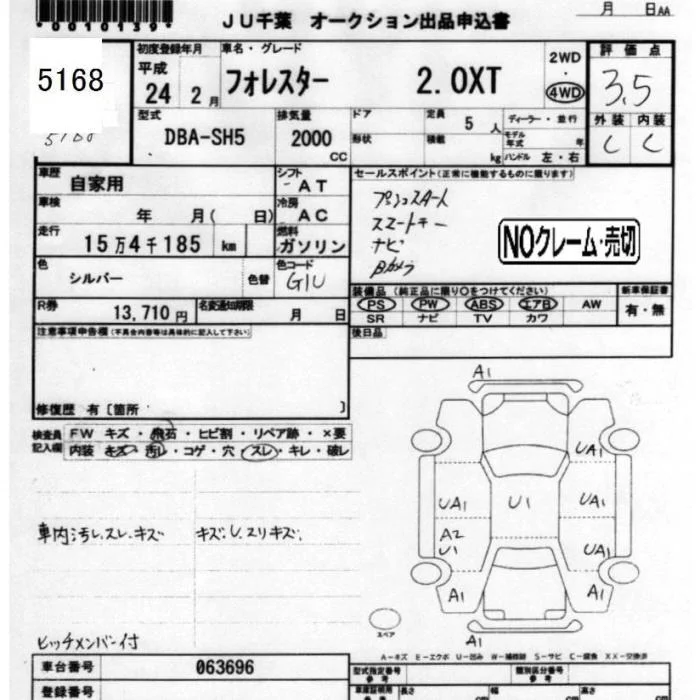 *0010139*
JU千葉 オークション出品申込書
月 日AA
5168
初度登録年月
平成
24 2月
車名・グレード
フォレスター 2.0XT
2WD
・
4WD
評価点
3.5
外装 内装
C C
型式
DBA-SH5
排気量
2000
CC
ドア
形状
定員 5人
積載 kg
ディーラー・並行
モデル年式 年
ハンドル 左・右
車歴
自家用
シフト
AT
車検
年 月( 日)
冷房
AC
走行
15万4千185 km
燃料
ガソリン
色
シルバー
色替
色コード
G1U
R券
13,710円
名変通知期限
月 日
セールスポイント(正常に機能するものに限ります)
プッシュスタート
スマートキー
ナビ
Bカメラ
NOクレーム・売切
装備品(純正品に限り○をつけてください)
PS PW ABS エアB AW
SR ナビ TV カワ
新車保証書
有・無
後日品
注意事項申告欄(不具合内容等は具体的に記入して下さい)
修復歴 有〔箇所 〕
検査員記入欄
FW キズ・飛石・ヒビ割・リペア跡・×要
内装 キズ・汚れ・コゲ・穴・スレ・キレ・破レ
車内汚レ.スレ.キズ
キズ.U.スリキズ.
ヒッチメンバー付
A1
UA1
UA1 U1 UA1
A2
U1
UA1
A1 A1
A1
スペア
A-キズ E-エクボ U-凹み W-補修跡 S-サビ C-腐食 XX-交換済
車台番号
063696
登録番号
型式指定番号
参考
類別区分番号
参考
車庫証明用
参考
長さ cm
幅 cm
高さ cm